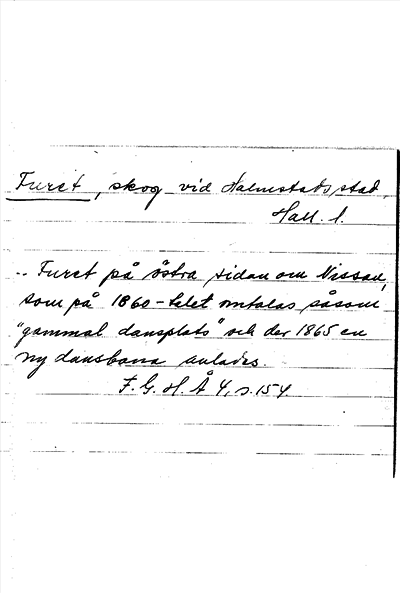 Furet, skog vid Halmstads stad,
Hall. l.
.. Furet på östra sidan om Nissan,
som på 1860-talet omtalas såsom
"gammal dansplats" och der 1865 en
ny dansbana anlades.
F. G. H. Å 4, s. 154